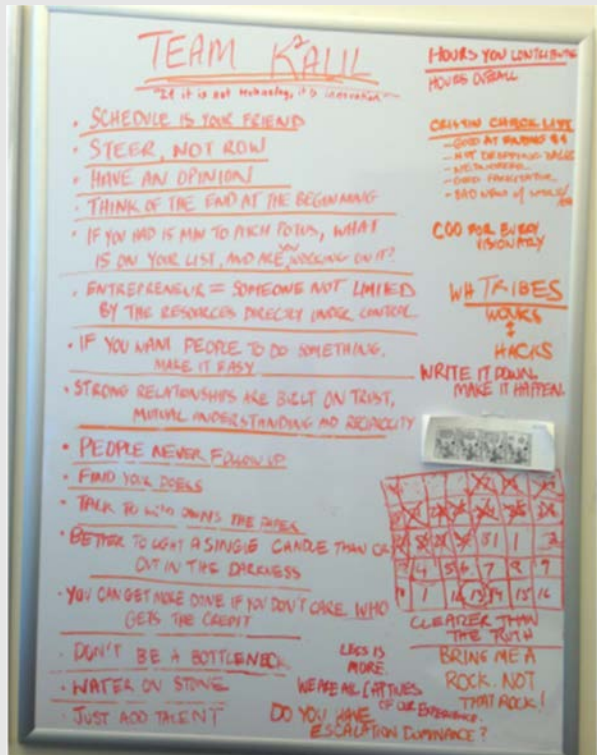 TEAM K²ALIL
"If it is not technology, it is innovation"
• SCHEDULE IS YOUR FRIEND
• STEER, NOT ROW
• HAVE AN OPINION
• THINK OF THE END AT THE BEGINNING
• IF YOU HAD 15 MIN TO PITCH POTUS, WHAT
IS ON YOUR LIST, AND ARE YOU WORKING ON IT?
• ENTREPRENEUR = SOMEONE NOT LIMITED
BY THE RESOURCES DIRECTLY UNDER CONTROL
• IF YOU WANT PEOPLE TO DO SOMETHING,
MAKE IT EASY
• STRONG RELATIONSHIPS ARE BUILT ON TRUST,
MUTUAL UNDERSTANDING AND RECIPROCITY
• PEOPLE NEVER FOLLOW UP
• FIND YOUR DOERS
• TALK TO WHO OWNS THE PAPER
• BETTER TO LIGHT A SINGLE CANDLE THAN
OUT IN THE DARKNESS
• YOU CAN GET MORE DONE IF YOU DON'T CARE WHO
GETS THE CREDIT
• DON'T BE A BOTTLENECK
• WATER ON STONE
• JUST ADD TALENT
HOURS YOU CONTRIBUTE
HOURS OVERALL
CRISTIN CHECKLIST
- GOOD AT FINDING $$
- NOT DROPPING BALLS
- GOOD FACILITATOR
COO FOR EVERY
VISIONARY
WH TRIBES
WONKS
↕
HACKS
WRITE IT DOWN
MAKE IT HAPPEN
51 1
4 5 6 7 8 9
15 16
CLEARER THAN
THE TRUTH
LESS IS
MORE.
BRING ME A
ROCK. NOT
THAT ROCK!
WE ARE ALL CAPTIVES
OF OUR EXPERIENCE.
DO YOU HAVE
ESCALATION DOMINANCE?